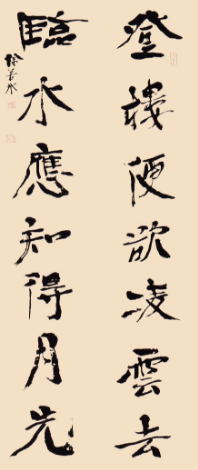 登樓便欲凌雲去
臨水應知得月先